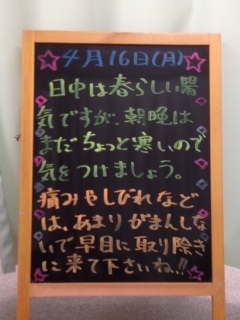 4月16日(月)
日中は春らしい陽
気ですが、朝晩は、
まだちょっと寒いので
気をつけましょう。
痛みやしびれなど
は、あまりがまんしな
いで早目に取り除き
に来て下さいね!!